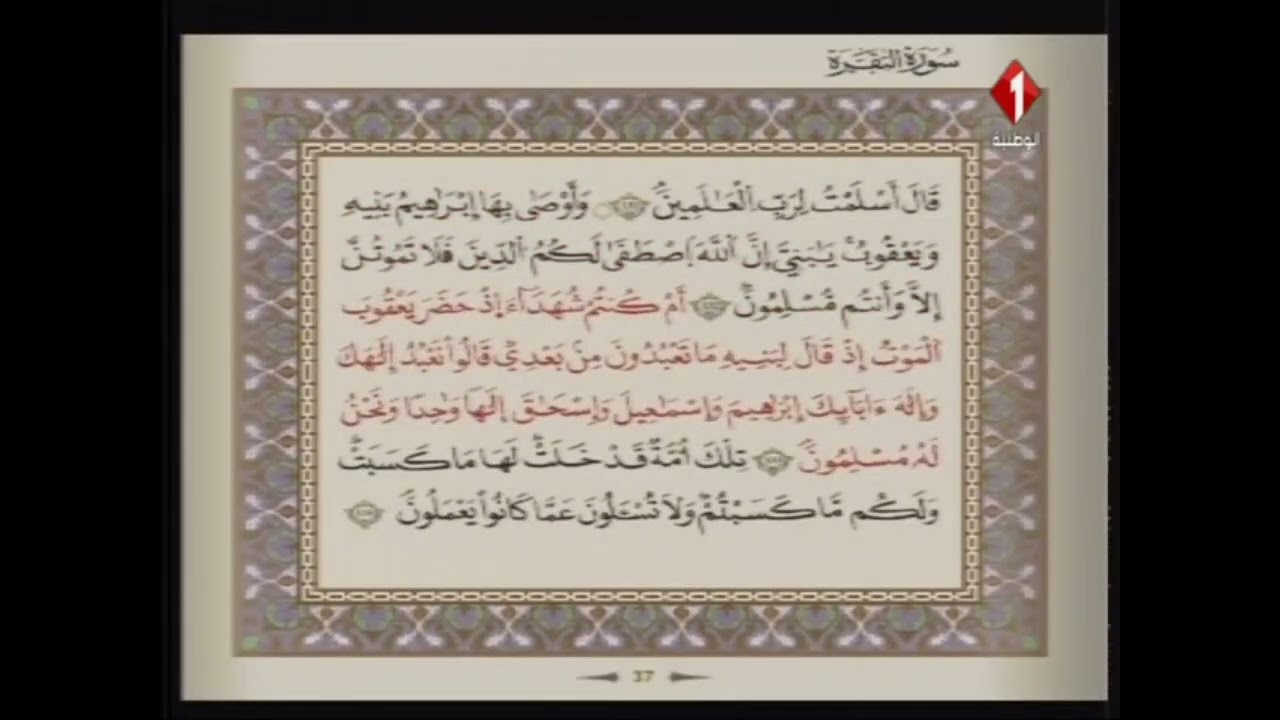 سُورَةُ الْبَقَرَةِ
1
الوطنية
قَالَ أَسْلَمْتُ لِرَبِّ الْعَٰلَمِينَ وَأَوْصَىٰ بِهَا إِبْرَٰهِيمُ بَنِيهِ
وَيَعْقُوبُ يَٰبَنِيَّ إِنَّ اللَّهَ اصْطَفَىٰ لَكُمُ الدِّينَ فَلَا تَمُوتُنَّ
إِلَّا وَأَنتُم مُّسْلِمُونَ أَمْ كُنتُمْ شُهَدَآءَ اِذْ حَضَرَ يَعْقُوبَ
الْمَوْتُ إِذْ قَالَ لِبَنِيهِ مَا تَعْبُدُونَ مِنۢ بَعْدِي قَالُوا نَعْبُدُ إِلَٰهَكَ
وَإِلَٰهَ ءَابَآئِكَ إِبْرَٰهِيمَ وَإِسْمَٰعِيلَ وَإِسْحَٰقَ إِلَٰهًا وَٰحِدًا وَنَحْنُ
لَهُ مُسْلِمُونَ تِلْكَ أُمَّةٌ قَدْ خَلَتْ لَهَا مَا كَسَبَتْ
وَلَكُم مَّا كَسَبْتُمْ وَلَا تُسْـَٔلُونَ عَمَّا كَانُوا يَعْمَلُونَ
37